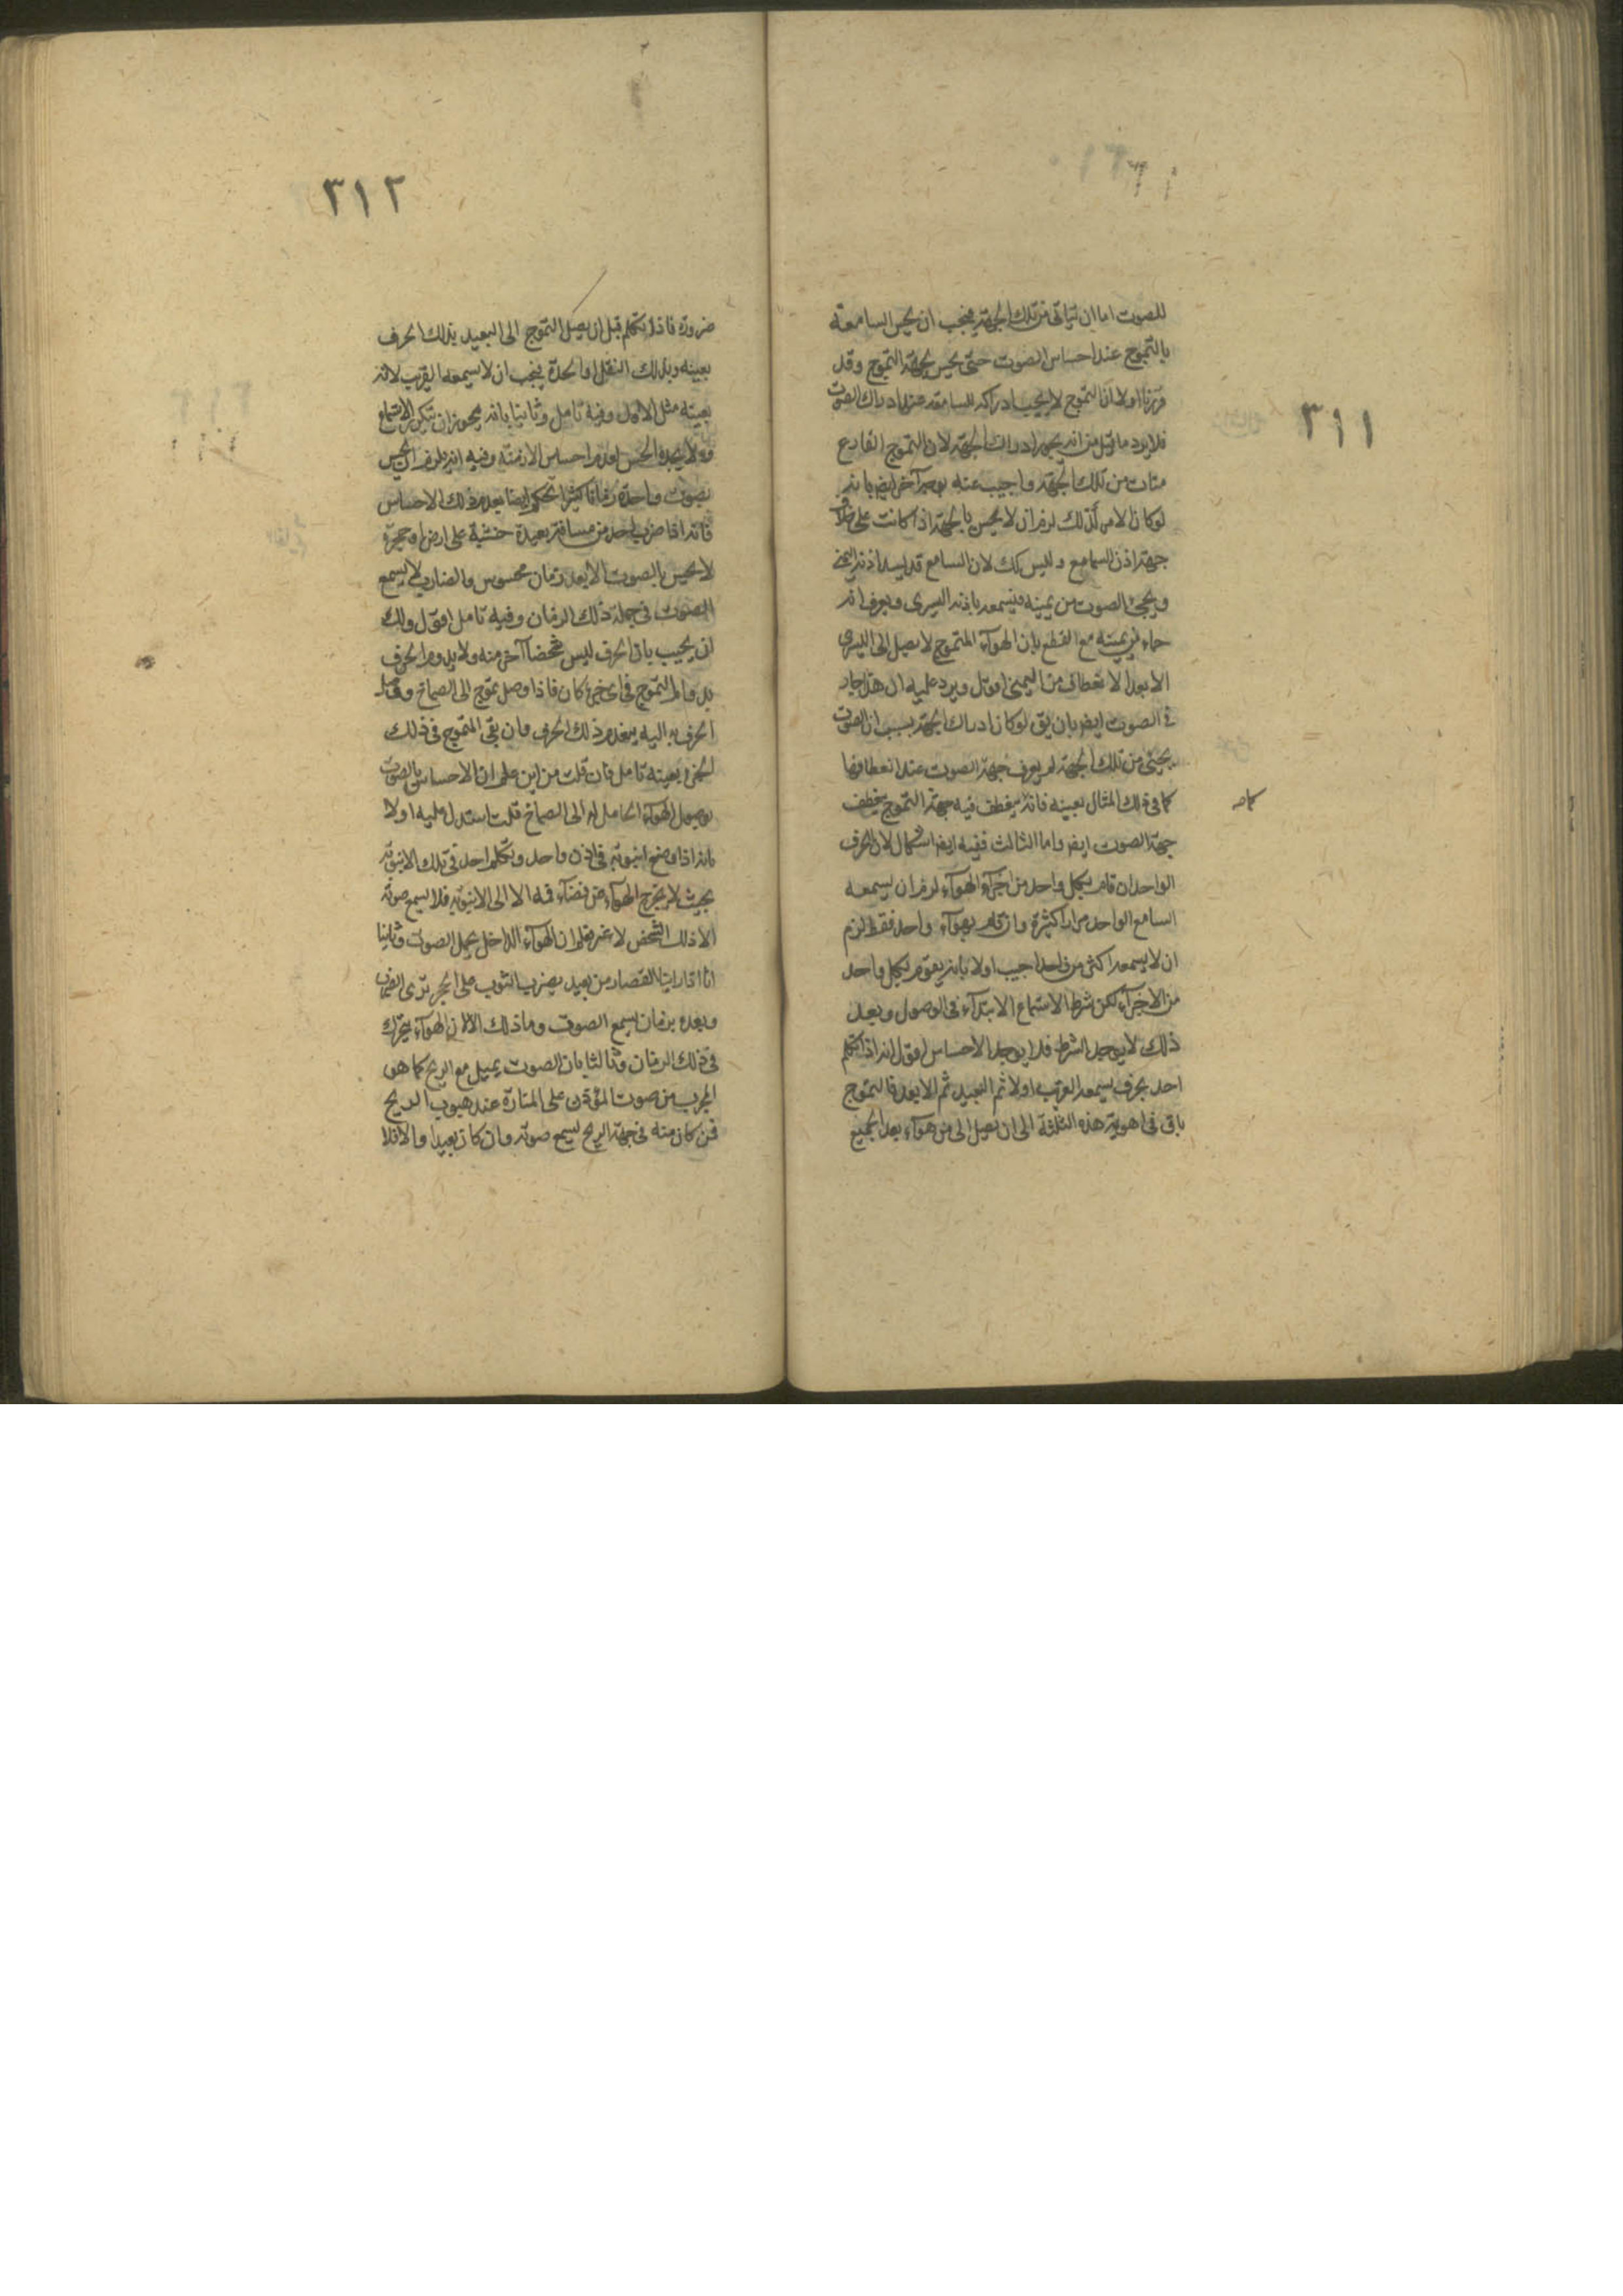 ٣١١
للصوت اما ان يأتي من تلك الجهة فيجب ان يحس السامعة
بالتموج عند احساس الصوت حتى يحس بجهة التموج وقد
قررنا اولا ان التموج لا يجب ادراكه للسامعة عند ادراك الصوت
فلا يرد ما قيل من انه يجب ادراك الجهة لان التموج القارع
من تلك الجهة واجيب عنه بوجه آخر ايضا بانه
لو كان الامر كذلك لزم ان لا يحس بالجهة اذا كانت على خلاف
جهة اذن السامع وليس كك لان السامع قد يسد اذنه اليمنى
ويجئ الصوت من يمينه فيسمعه باذنه اليسرى ويعرف انه
جاء من يمينه مع القطع بان الهوآء المتموج لا يصل الى اليسرى
الا بعد الانعطاف من اليمنى اقول ويرد عليه ان هذا جار
في الصوت ايضا بان يق لو كان ادراك الجهة بسبب ان الصوت
يجئ من تلك الجهة لم يعرف جهة الصوت عند انعطافها
كما في ذلك المثال بعينه فانه ينعطف فيه جهة التموج ينعطف
كما مر
جهة الصوت ايضا واما الثالث ففيه ايضا اشكال لان الحرف
الواحد ان قام بكل واحد من اجزآء الهوآء لزم ان يسمعه
السامع الواحد مرارا كثيرة وان قام بهوآء واحد فقط لزم
ان لا يسمعه اكثر من واحد اجيب اولا بانه يقوم لكل واحد
من الاجزآء لكن شرط الاستماع الابتدآء في الوصول وبعد
ذلك لا يوجد الشرط فلا يوجد الاحساس اقول انه اذا تكلم
احد بحرف يسمعه القريب اولا ثم البعيد ثم الابعد فالتموج
باق في اهوية هذه الثلثة الى ان يصل الى من هوآء بعد الجميع
٣١٢
ضرورة فاذا تكلم قبل ان يصل التموج الى البعيد بذلك الحرف
بعينه وبذلك الثقل او الحدة يجب ان لا يسمعه القريب لانه
بعينه مثل الاول وفيه تامل وثانيا بانه يجوز ان يتكرر الاستماع
ولا يجده الحس لعدم احساس الازمنة وفيه انه يلزم ان يحس
بصوت واحدة زمانا كثيرا نحكم ايضا بعدم ذلك الاحساس
فانه اذا ضرب احد من مسافة بعيدة خشبة على ارض او حجرة
لا يحس بالصوت الا بعد زمان محسوس والضارب لا يسمع
الصوت في جملة ذلك الزمان وفيه تامل اقول ولك
ان يجيب بان الحرف ليس شخصا آخر منه ولا يدوم الحرف
بدوام التموج في اي جزء كان فاذا وصل تموج الى الصماخ وقد وصل
الحرف به اليه ينعدم ذلك الحرف وان بقي التموج في ذلك
الجزء بعينه تامل فان قلت من اين علم ان الاحساس بالصوت
بوصول الهوآء الحامل له الى الصماخ قلت استدل عليه اولا
بانه اذا وضع انبوبة في اذن واحد وتكلم احد في تلك الانبوبة
بحيث لا يخرج الهوآء من فضآء فمه الا الى الانبوبة فلا يسمع صوته
الا ذلك الشخص لا غير فعلم ان الهوآء الداخل يحمل الصوت وثانيا
انا اذا راينا القصار من بعيد يضرب الثوب على الحجر نرى الضرب
وبعده بزمان نسمع الصوت وما ذلك الا لان الهوآء يتحرك
في ذلك الزمان وثالثا بان الصوت يميل مع الريح كما هو
المجرب من صوت المؤذن على المنارة عند هبوب الريح
فمن كان منه في جهة الريح يسمع صوته وان كان بعيدا والا فلا